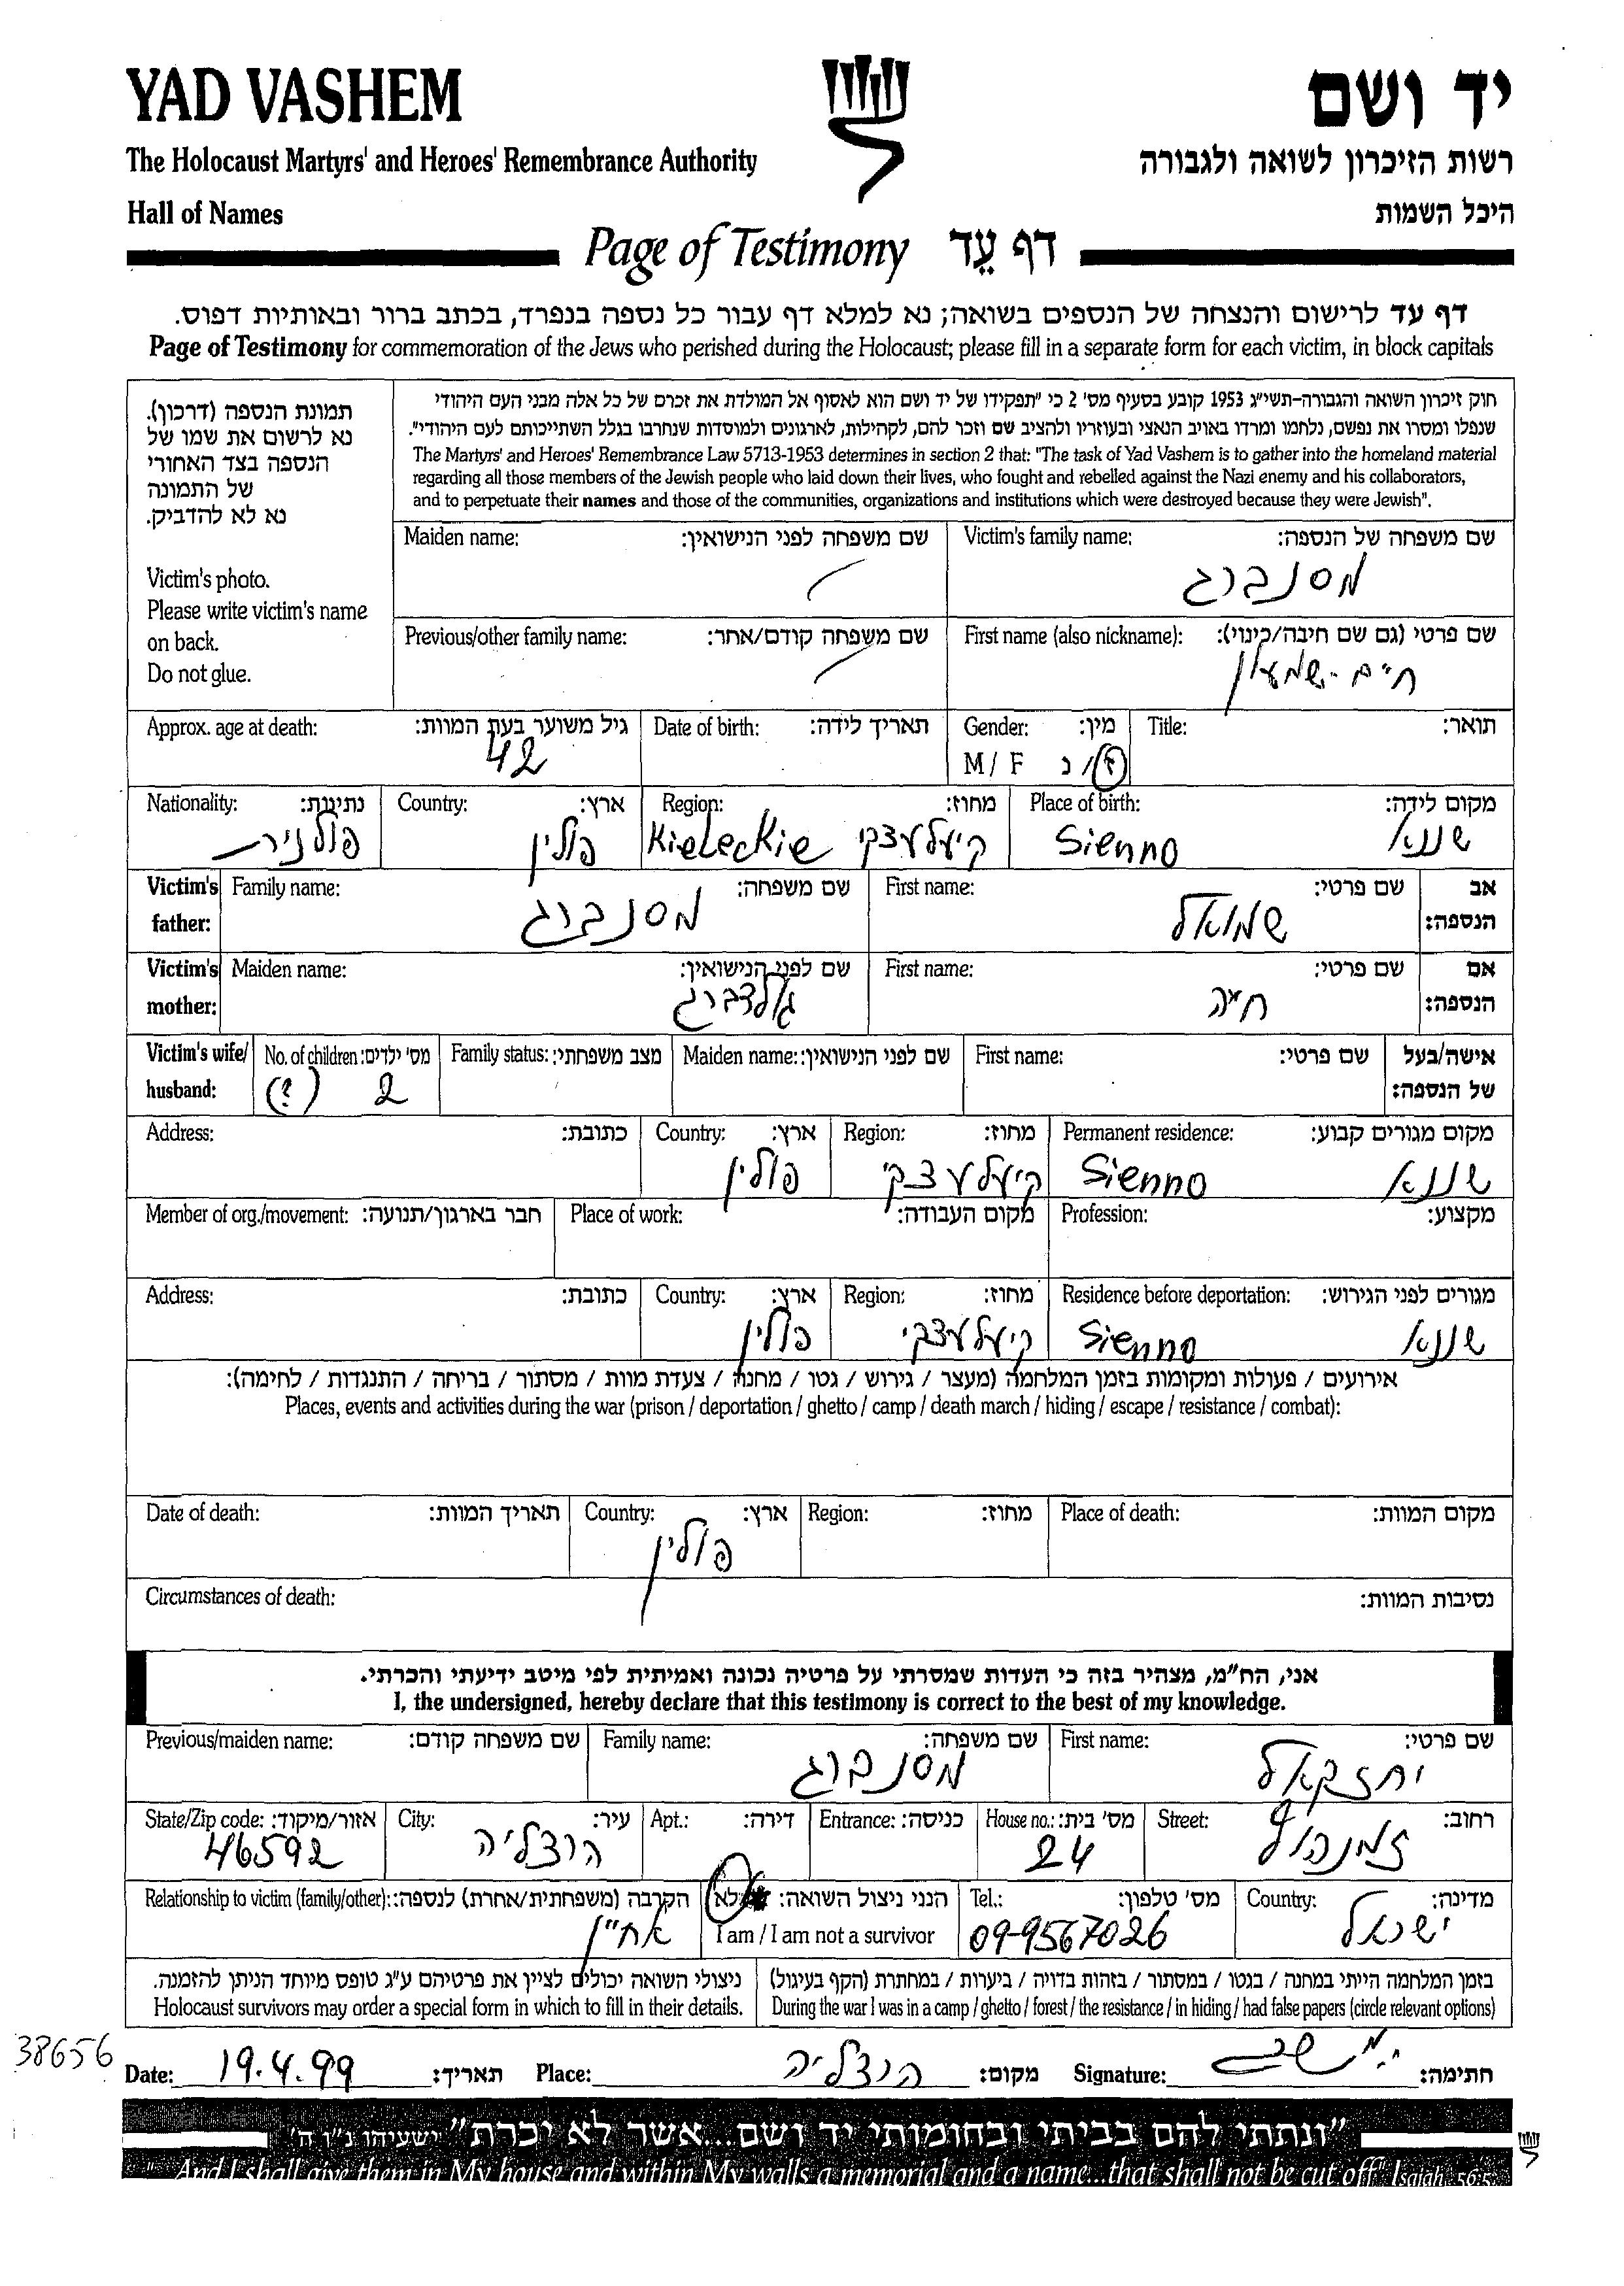 YAD VASHEM
יד ושם
The Holocaust Martyrs' and Heroes' Remembrance Authority
רשות הזיכרון לשואה ולגבורה
Hall of Names
היכל השמות
Page of Testimony דף עֵד
דף עד לרישום והנצחה של הנספים בשואה; נא למלא דף עבור כל נספה בנפרד, בכתב ברור ובאותיות דפוס.
Page of Testimony for commemoration of the Jews who perished during the Holocaust; please fill in a separate form for each victim, in block capitals
תמונת הנספה (דרכון).
נא לרשום את שמו של
הנספה בצד האחורי
של התמונה
נא לא להדביק.
Victim's photo.
Please write victim's name
on back.
Do not glue.
חוק זיכרון השואה והגבורה-תשי"ג 1953 קובע בסעיף מס' 2 כי "תפקידו של יד ושם הוא לאסוף אל המולדת את זכרם של כל אלה מבני העם היהודי
שנפלו ומסרו את נפשם, נלחמו ומרדו באויב הנאצי ובעוזריו ולהציב שם וזכר להם, לקהילות, לארגונים ולמוסדות שנחרבו בגלל השתייכותם לעם היהודי".
The Martyrs' and Heroes' Remembrance Law 5713-1953 determines in section 2 that: "The task of Yad Vashem is to gather into the homeland material
regarding all those members of the Jewish people who laid down their lives, who fought and rebelled against the Nazi enemy and his collaborators,
and to perpetuate their names and those of the communities, organizations and institutions which were destroyed because they were Jewish".
Maiden name: שם משפחה לפני הנישואין: Victim's family name: שם משפחה של הנספה:
מסנברג
Previous/other family name: שם משפחה קודם/אחר: First name (also nickname): שם פרטי (גם שם חיבה/כינוי):
חיים-שמעון
Approx. age at death: גיל משוער בעת המוות: Date of birth: תאריך לידה: Gender: מין: Title: תואר:
42 M / F ז/נ
Nationality: נתינות: Country: ארץ: Region: מחוז: Place of birth: מקום לידה:
פולנית פולין Kieleckie קיעלעצקי Sienno שננא
Victim's father: Family name: שם משפחה: First name: שם פרטי: אב הנספה:
מסנברג שמואל
Victim's mother: Maiden name: שם לפני הנישואין: First name: שם פרטי: אם הנספה:
גולדברג חיה
Victim's wife/ husband: No. of children: מס' ילדים: Family status: מצב משפחתי: Maiden name: שם לפני הנישואין: First name: שם פרטי: אישה/בעל של הנספה:
(?) 2
Address: כתובת: Country: ארץ: Region: מחוז: Permanent residence: מקום מגורים קבוע:
פולין קיעלעצקי Sienno שננא
Member of org./movement: חבר בארגון/תנועה: Place of work: מקום העבודה: Profession: מקצוע:
Address: כתובת: Country: ארץ: Region: מחוז: Residence before deportation: מגורים לפני הגירוש:
פולין קיעלעצקי Sienno שננא
אירועים / פעולות ומקומות בזמן המלחמה (מעצר / גירוש / גטו / מחנה / צעדת מוות / מסתור / בריחה / התנגדות / לחימה):
Places, events and activities during the war (prison / deportation / ghetto / camp / death march / hiding / escape / resistance / combat):
Date of death: תאריך המוות: Country: ארץ: Region: מחוז: Place of death: מקום המוות:
פולין
Circumstances of death: נסיבות המוות:
אני, הח"מ, מצהיר בזה כי העדות שמסרתי על פרטיה נכונה ואמיתית לפי מיטב ידיעתי והכרתי.
I, the undersigned, hereby declare that this testimony is correct to the best of my knowledge.
Previous/maiden name: שם משפחה קודם: Family name: שם משפחה: First name: שם פרטי:
מסנברג יחזקאל
State/Zip code: אזור/מיקוד: City: עיר: Apt.: דירה: Entrance: כניסה: House no.: מס' בית: Street: רחוב:
46592 הרצליה 24 זמנהוף
Relationship to victim (family/other): הקרבה (משפחתית/אחרת) לנספה: הנני ניצול השואה: לא Tel.: מס' טלפון: Country: מדינה:
אחיין I am / I am not a survivor 09-9567026 ישראל
ניצולי השואה יכולים לציין את פרטיהם ע"ג טופס מיוחד הניתן להזמנה. בזמן המלחמה הייתי במחנה / בגטו / במסתור / בזהות בדויה / ביערות / במחתרת (הקף בעיגול)
Holocaust survivors may order a special form in which to fill in their details. During the war I was in a camp / ghetto / forest / the resistance / in hiding / had false papers (circle relevant options)
38656
Date: 19.4.99 תאריך: Place: הרצליה מקום: Signature: חתימה:
"ונתתי להם בביתי ובחומותי יד ושם...אשר לא יכרת" ישעיהו נ"ו ה'
"...And I shall give them in My house and within My walls a memorial and a name...that shall not be cut off" Isaiah 56:5